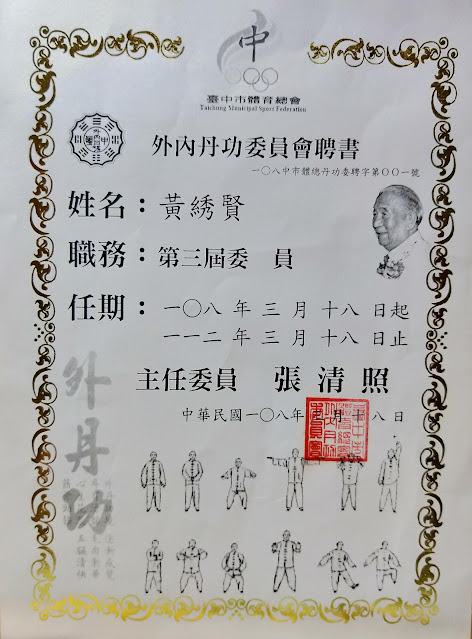 中
臺中市體育總會
Taichung Municipal Sport Federation
外內丹功委員會聘書
一〇八中市體總丹功委聘字第〇〇一號
姓名：黃綉賢
職務：第三屆委 員
任期：一〇八 年 三 月 十八 日起
一一二 年 三 月 十八 日止
主任委員 張清照
中華民國一〇八年 月十八日
外丹功